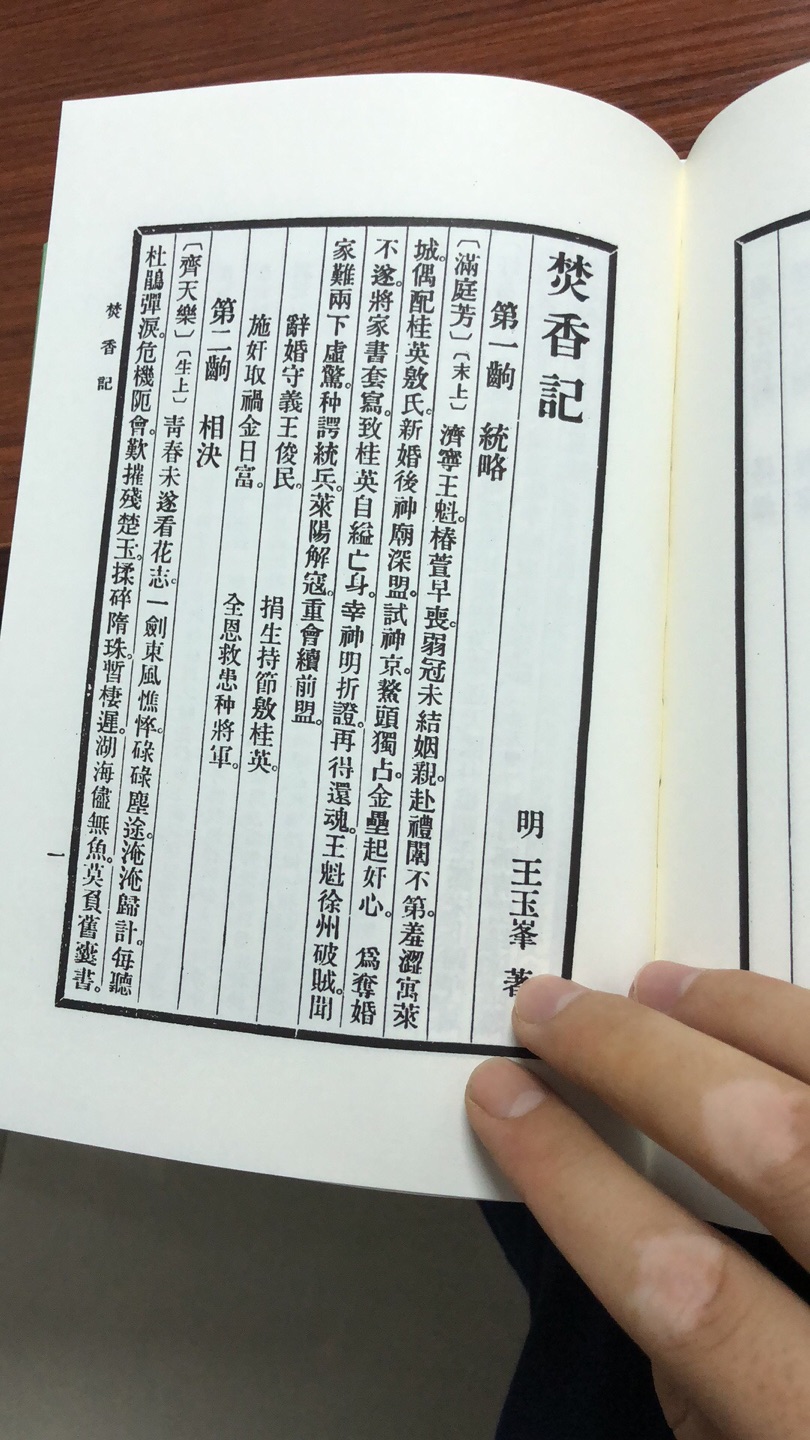 焚香記
明 王玉峯 著
第一齣 統略
〔滿庭芳〕〔末上〕濟寧王魁。椿萱早喪。弱冠未結姻親。赴禮闈不第。羞澀寓萊
城。偶配桂英敫氏。新婚後神廟深盟。試神京。鰲頭獨占。金壘起奸心。 爲奪婚
不遂。將家書套寫。致桂英自縊亡身。幸神明折證。再得還魂。王魁徐州破賊。聞
家難兩下虛驚。种諤統兵。萊陽解寇。重會續前盟。
辭婚守義王俊民。 捐生持節敫桂英。
施奸取禍金日富。 全恩救患种將軍。
第二齣 相決
〔齊天樂〕〔生上〕靑春未遂看花志。一劍東風憔悴。碌碌塵途。淹淹歸計。每聽
杜鵑彈淚。危機阨會。歎摧殘楚玉。揉碎隋珠。暫棲遲。湖海儘無魚。莫負舊囊書。
焚香記
一